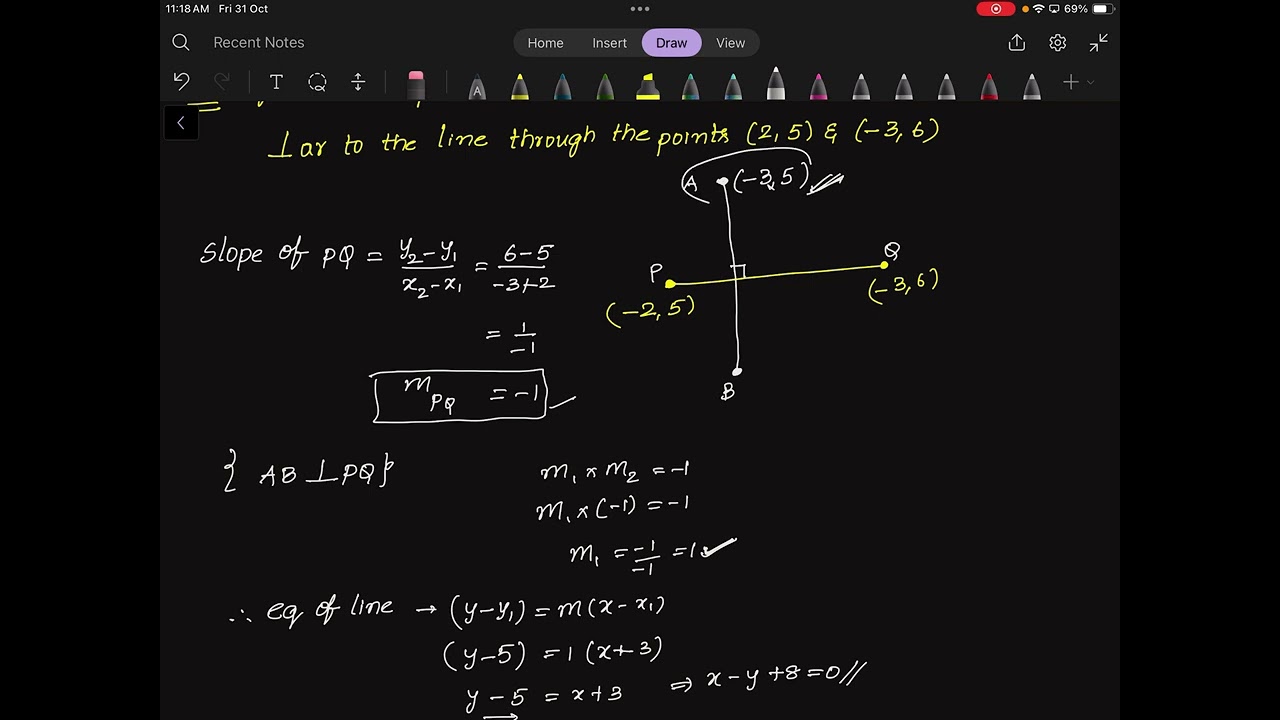 11:18 AM Fri 31 Oct
69%
Recent Notes
Home Insert Draw View
⊥ar to the line through the points (2, 5) & (-3, 6)
A (-3, 5)
Slope of PQ = y₂-y₁/x₂-x₁ = 6-5/-3+2
P
(-2, 5)
Q
(-3, 6)
= 1/-1
m_PQ = -1
B
{ AB ⊥ PQ}
m₁ × m₂ = -1
m₁ × (-1) = -1
m₁ = -1/-1 = 1
∴ eq of line → (y-y₁) = m(x-x₁)
(y-5) = 1 (x+3)
y - 5 = x+3 ⇒ x-y+8=0//